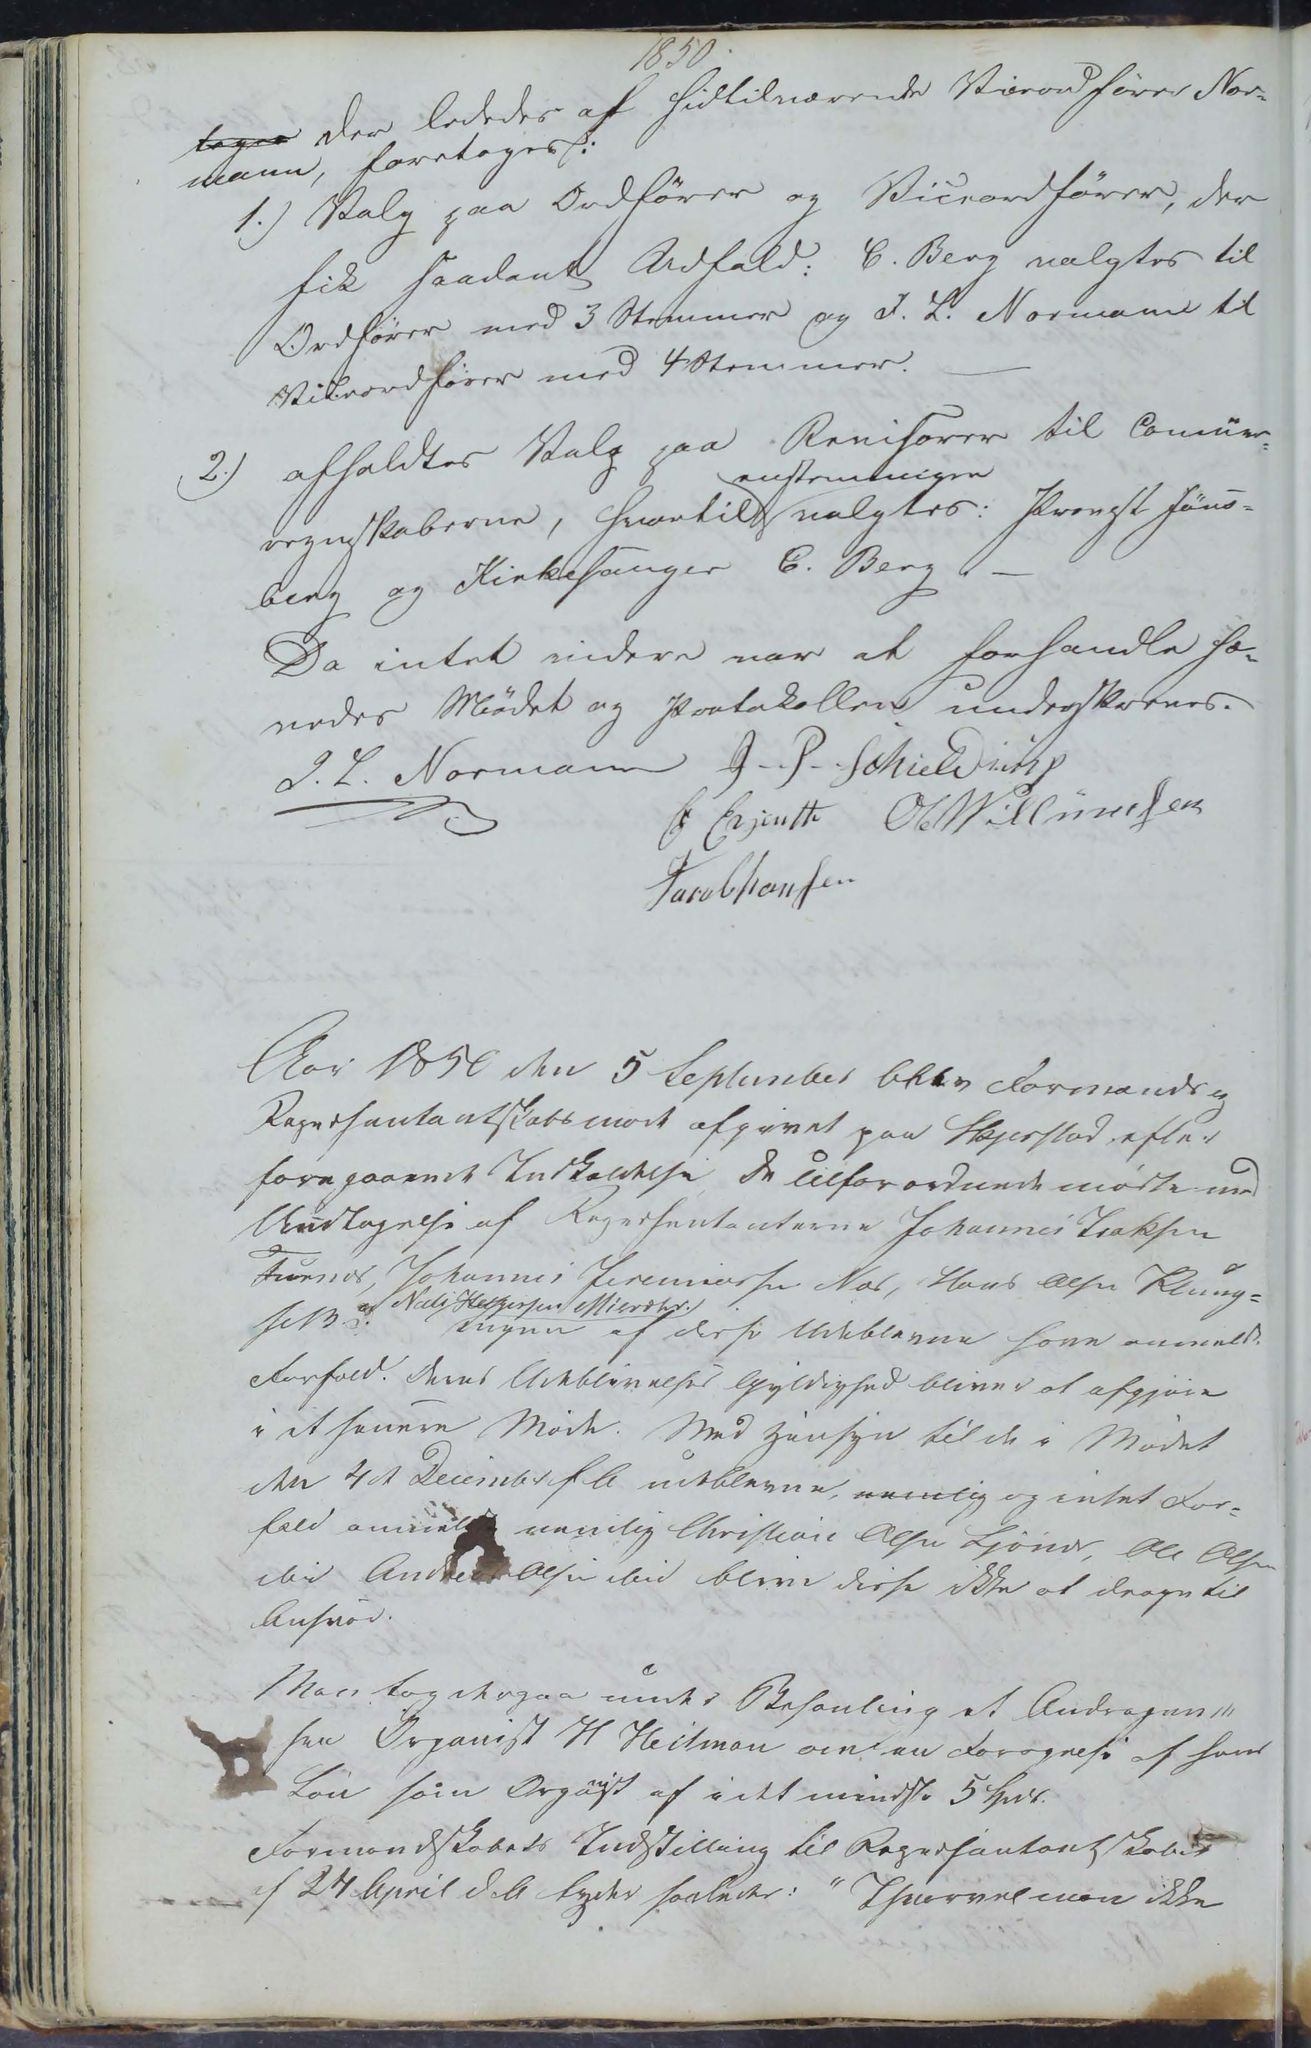 1850.
tages der lededes af hidtilværende Viceordfører Nor-
mann, foretoges:
1.) Valg paa Ordfører og Viceordfører, der
fik saadant Udfald: C. Berg valgtes til
Ordfører med 3 Stemmer og I. L. Normann til
Viceordfører med 4 Stemmer. —
2.) afholdtes Valg paa Revisorer til Commune-
enstemmigen
regnskaberne, hvortil valgtes: Provst Jöns-
berg og Kirkesanger C. Berg. —
Da intet videre var at forhandle hæ-
vedes Mödet og Protokollen underskreves.
I. L. Normann J. P. Schjelderup
Ole Willumsen
Jacob Hansen
Aar 1850 den 5 September blev Formands og
Repræsentantskabsmøde afgivet paa Skjerstad efter
foregaaende Indkaldelse. De tilforordnede mødte med
Undtagelse af Repræsentanterne Johannes Isaksen
Johannes Jeremiassen Næs, Hans Olsen Klung-
og
set
ingen af disse Udeblevne have anmeldt
Forfald. Deres Udeblivelses Gyldighed bliver at afgjøre
i et senere Møde. Med Hensyn til de i Mødet
den 4de December f. A. udeblevne, nemlig og intet For-
fald anmeldt nemlig Christian Olsen Ljönes, Ole Olsen
ibid Andreas Olsen ibid bliver disse ikke at drage til
Ansvar.
Man tog derpaa under Behandling et Andragende
fra Organist H Heitman om en Forøgelse af hans
Løn som Organist af i det mindste 5 Spdr.
Formandskabets Indstilling til Repræsentantskabet
af 24 April d. A. lyder saaledes: "Ihvorvel man ikke